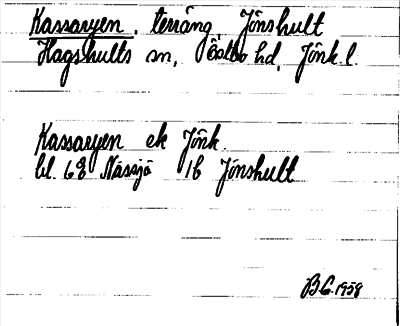 Kassaryen, terräng, Jönshult
Hagshults sn, Östbo hd, Jönk. l.
Kassaryen ek Jönk.
bl. 68 Nässjö 16 Jönshult
B.G. 1958